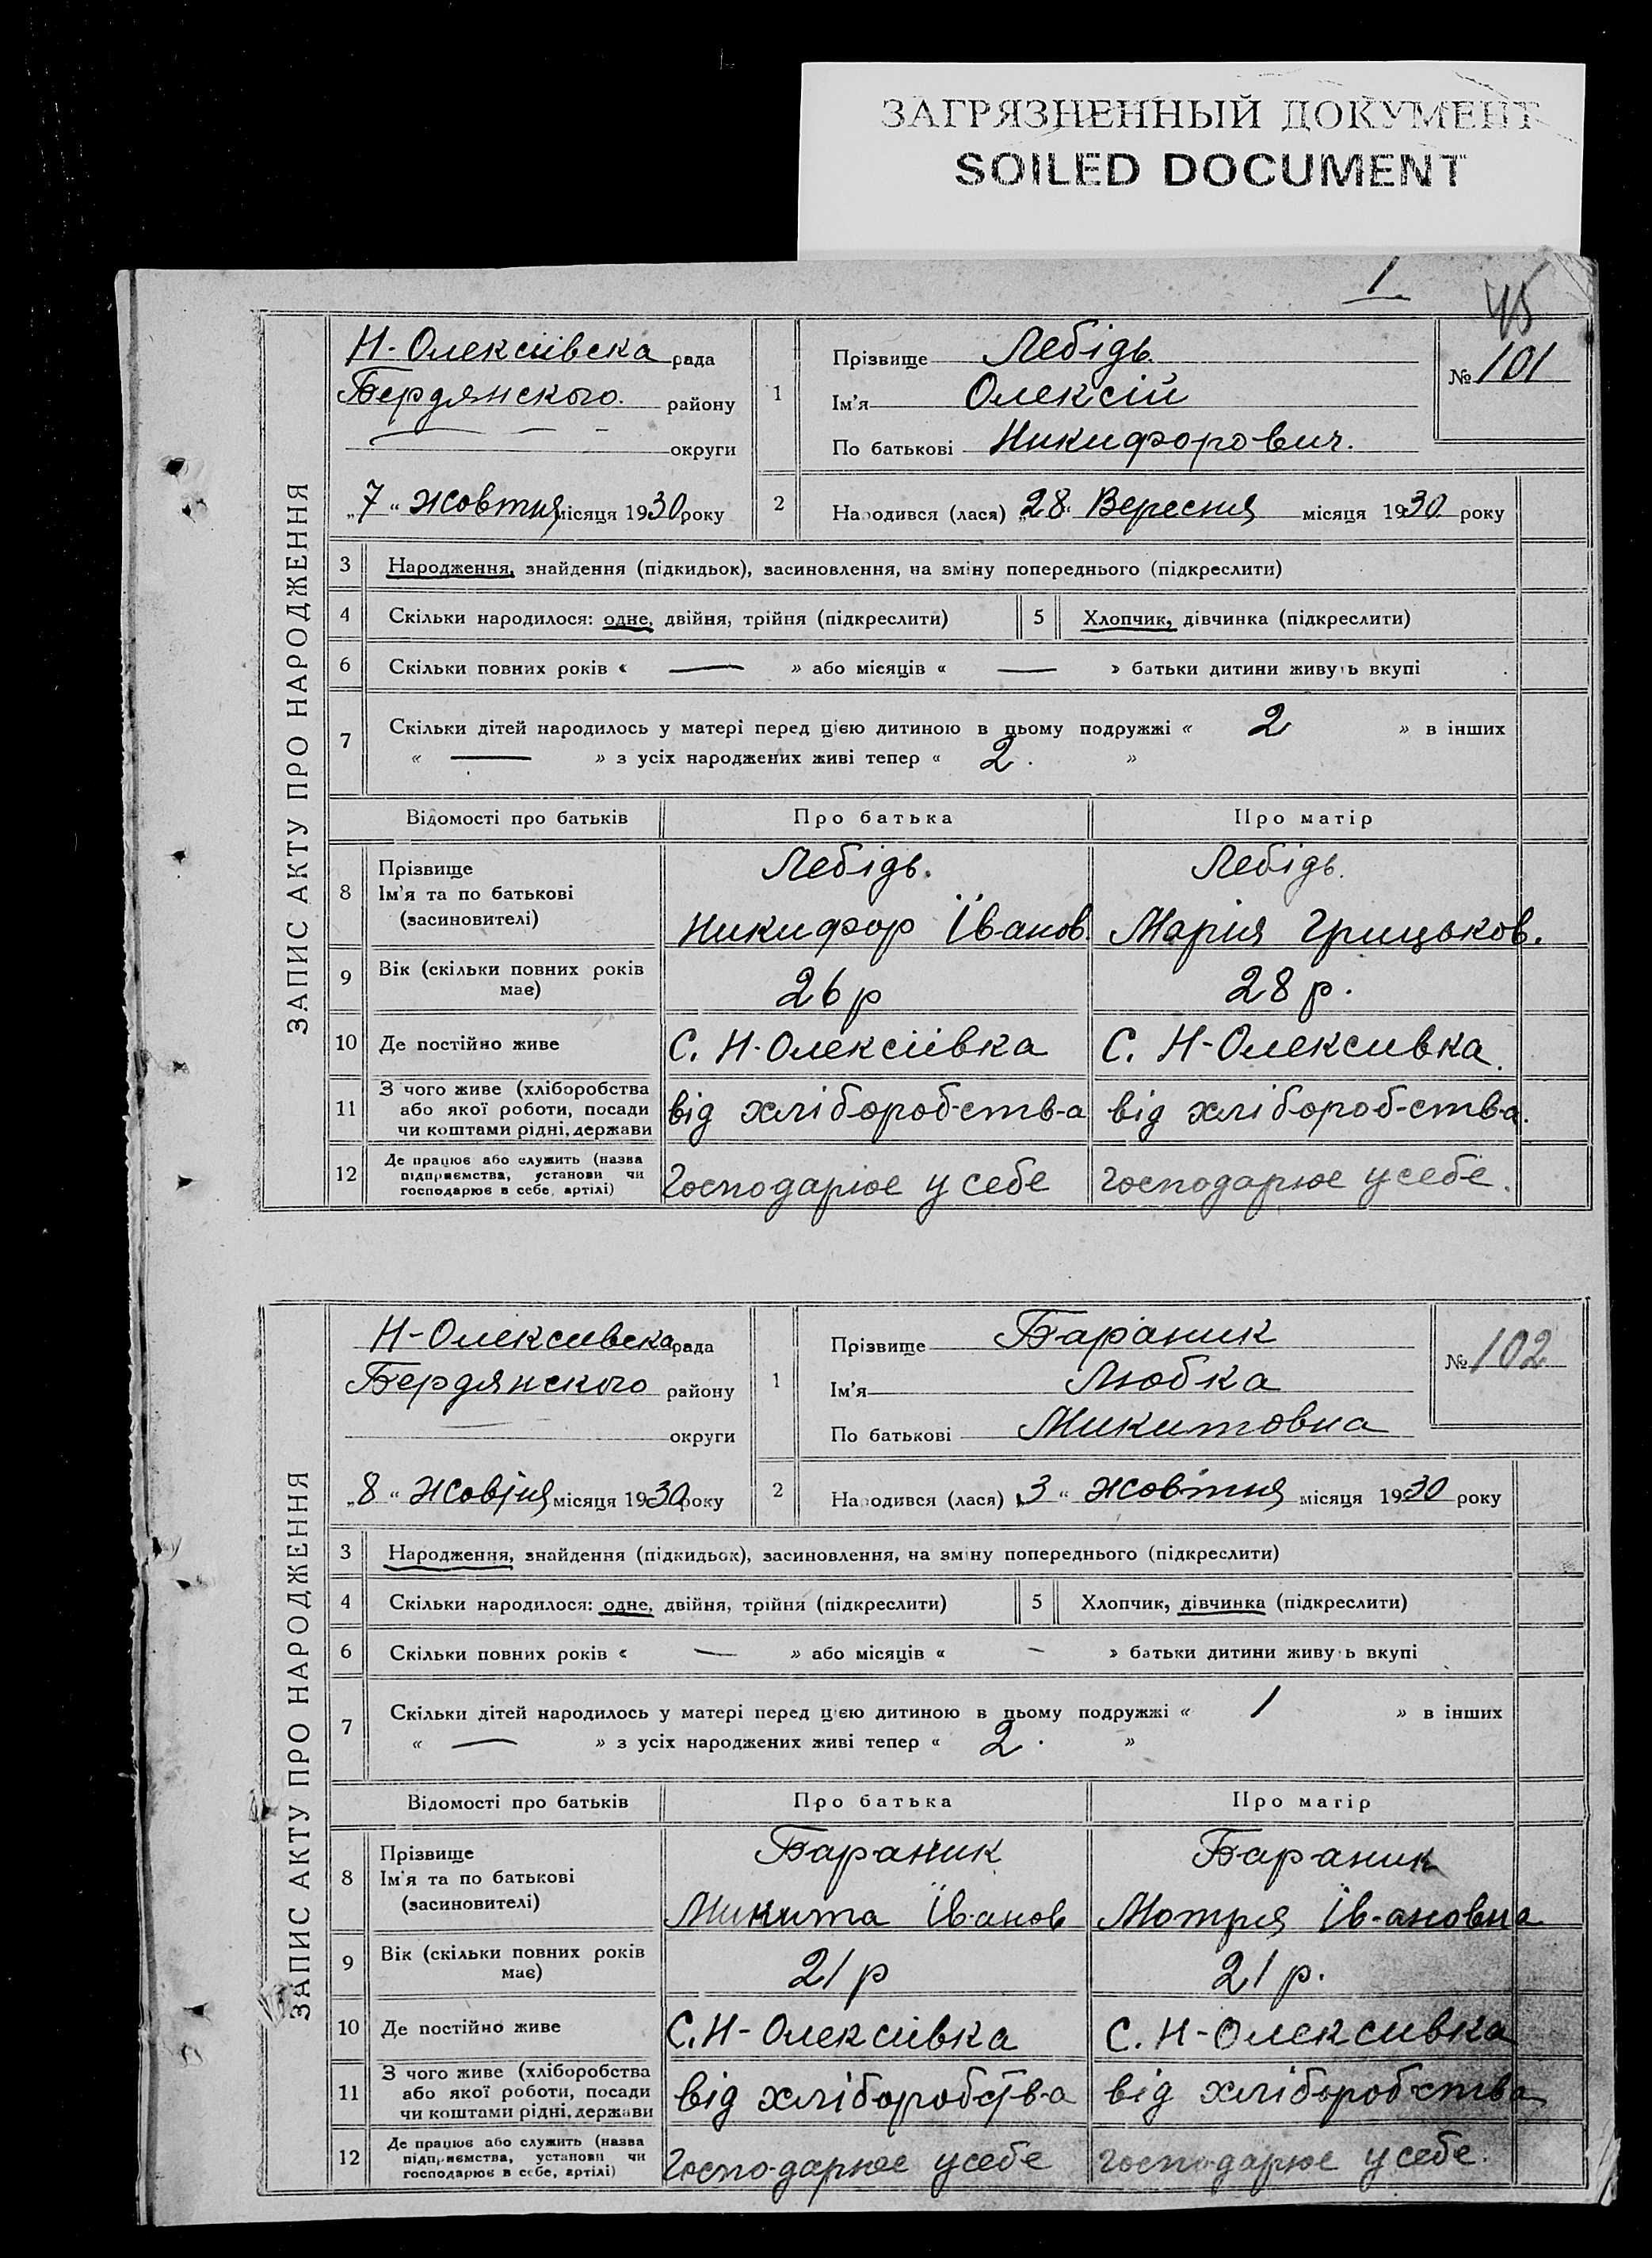 ЗАГРЯЗНЕННЫЙ ДОКУМЕНТ
SOILED DOCUMENT
1.
45
ЗАПИС АКТУ ПРО НАРОДЖЕННЯ
Н-Олексіївска рада
Бердянского. району
округи
„7“ жовтня місяця 1930 року
1
Прізвище Лебідь.
Ім'я Олексій
По батькові Никифорович.
№ 101
2
Народився (лася) „28“ Вересня місяця 1930 року
3 Народження, знайдення (підкидьок), засиновлення, на зміну попереднього (підкреслити)
4 Скільки народилося: одне, двійня, трійня (підкреслити) 5 Хлопчик, дівчинка (підкреслити)
6 Скільки повних років « — » або місяців « — » батьки дитини живуть вкупі
7 Скільки дітей народилось у матері перед цією дитиною в цьому подружжі « 2 » в інших
« — » з усіх народжених живі тепер « 2. »
Відомості про батьків Про батька Про матір
8 Прізвище
Ім'я та по батькові
(засиновителі)
Лебідь. Лебідь.
Никифор Іванов. Мария Грицьков.
9 Вік (скільки повних років
має)
26 р 28 р.
10 Де постійно живе С. Н-Олексіівка С. Н-Олексивка.
11 З чого живе (хліборобства
або якої роботи, посади
чи коштами рідні, держави
від хлібороб-ств-а від хлібороб-ств-а.
12 Де працює або служить (назва
підприємства, установи чи
господарює в себе, артілі)
Господарює у себе Господарює у себе.
ЗАПИС АКТУ ПРО НАРОДЖЕННЯ
Н-Олексивска рада
Бердянского району
округи
„8“ Жовтня місяця 1930 року
1
Прізвище Бараник
Ім'я Любка
По батькові Микитовна
№ 102
2
Народився (лася) „3“ жовтня місяця 1930 року
3 Народження, знайдення (підкидьок), засиновлення, на зміну попереднього (підкреслити)
4 Скільки народилося: одне, двійня, трійня (підкреслити) 5 Хлопчик, дівчинка (підкреслити)
6 Скільки повних років « — » або місяців « — » батьки дитини живуть вкупі
7 Скільки дітей народилось у матері перед цією дитиною в цьому подружжі « 1 » в інших
« — » з усіх народжених живі тепер « 2. »
Відомості про батьків Про батька Про матір
8 Прізвище
Ім'я та по батькові
(засиновителі)
Бараник Бараник
Микита Іванов Мотря Ів-ановна
9 Вік (скільки повних років
має)
21 р 21 р.
10 Де постійно живе С. Н-Олексіівка С. Н-Олексивка
11 З чого живе (хліборобства
або якої роботи, посади
чи коштами рідні, держави
від хліборобств-а від хліборобства
12 Де працює або служить (назва
підприємства, установи чи
господарює в себе, артілі)
Господарює у себе Господарює у себе.